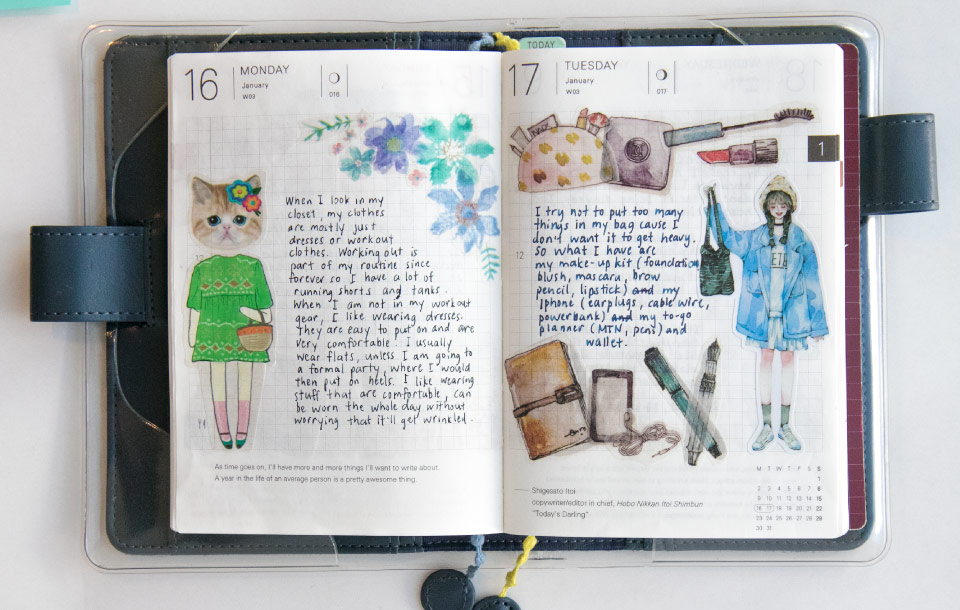 TODAY
16
MONDAY
January
W03
016
When I look in my
closet, my clothes
are mostly just
dresses or workout
clothes. Working out is
part of my routine since
forever so I have a lot of
running shorts and tanks.
When I am not in my workout
gear, I like wearing dresses.
They are easy to put on and are
very comfortable! I usually
wear flats, unless I am going to
a formal party, where I would
then put on heels. I like wearing
stuff that are comfortable, can
be worn the whole day without
worrying that it'll get wrinkled.
As time goes on, I'll have more and more things I'll want to write about.
A year in the life of an average person is a pretty awesome thing.
17
TUESDAY
January
W03
017
1
I try not to put too many
things in my bag cause I
don't want it to get heavy.
So what I have are
12
my make-up kit (foundation,
blush, mascara, brow
pencil, lipstick) and my
Iphone (earplugs, cable wire,
powerbank) and my to-go
planner (MTN, pens) and
wallet.
Shigesato Itoi
copywriter/editor in chief, Hobo Nikkan Itoi Shimbun
"Today's Darling"
M T W T F S S
1
2 3 4 5 6 7 8
9 10 11 12 13 14 15
16 17 18 19 20 21 22
23 24 25 26 27 28 29
30 31